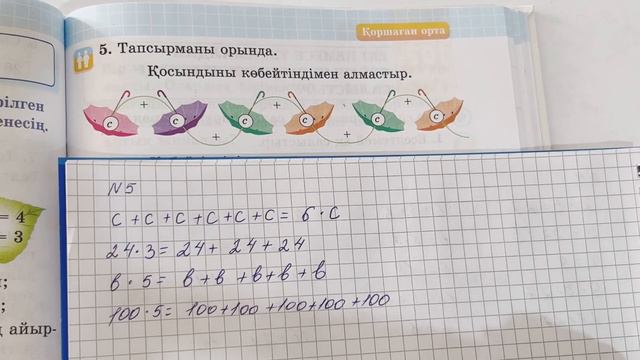 Қоршаған орта
5. Тапсырманы орында.
Қосындыны көбейтіндімен алмастыр.
c + c + c + c + c + c
рілген
енесің.
= 4
= 3
;
;
қ айыр-
N5
c + c + c + c + c + c = 6 · c
24 · 3 = 24 + 24 + 24
в · 5 = в + в + в + в + в
100 · 5 = 100 + 100 + 100 + 100 + 100